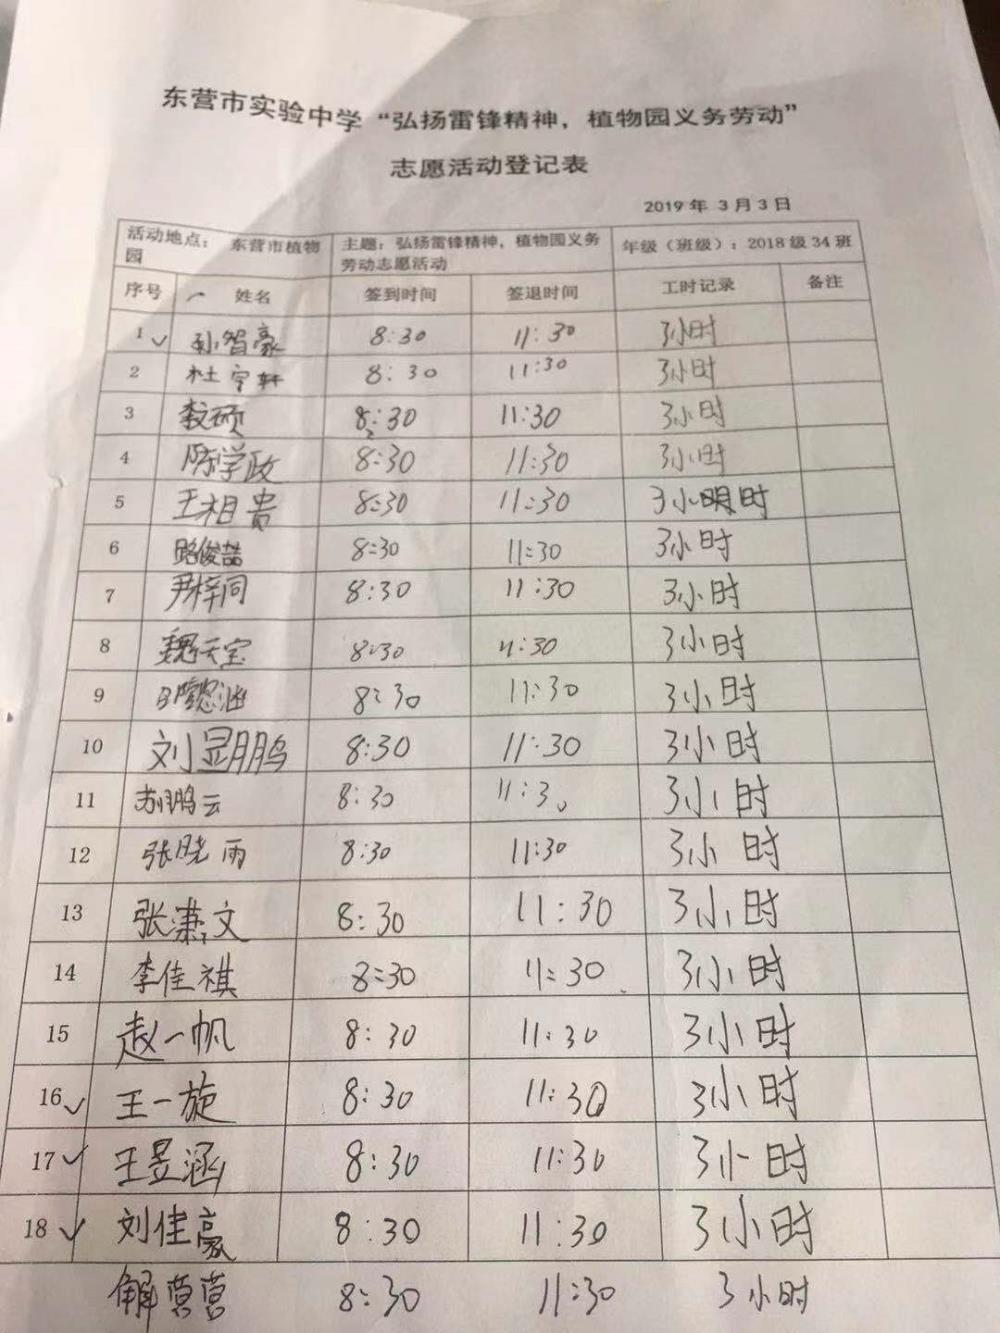 东营市实验中学“弘扬雷锋精神，植物园义务劳动”
志愿活动登记表
2019 年 3 月 3 日
活动地点： 东营市植物园 主题：弘扬雷锋精神，植物园义务劳动志愿活动 年级（班级）：2018 级 34 班
序号 姓名 签到时间 签退时间 工时记录 备注
1 孙智豪 8:30 11:30 3小时
2 杜宇轩 8:30 11:30 3小时
3 8:30 11:30 3小时
4 陈学政 8:30 11:30 3小时
5 王相贵 8:30 11:30 3小时
6 路俊喆 8:30 11:30 3小时
7 尹梓同 8:30 11:30 3小时
8 魏天宝 8:30 11:30 3小时
9 8:30 11:30 3小时
10 刘显鹏 8:30 11:30 3小时
11 苏鹏云 8:30 11:30 3小时
12 张晓雨 8:30 11:30 3小时
13 张潇文 8:30 11:30 3小时
14 李佳祺 8:30 11:30 3小时
15 赵一帆 8:30 11:30 3小时
16 王一旋 8:30 11:30 3小时
17 王昱涵 8:30 11:30 3小时
18 刘佳豪 8:30 11:30 3小时
解营营 8:30 11:30 3小时